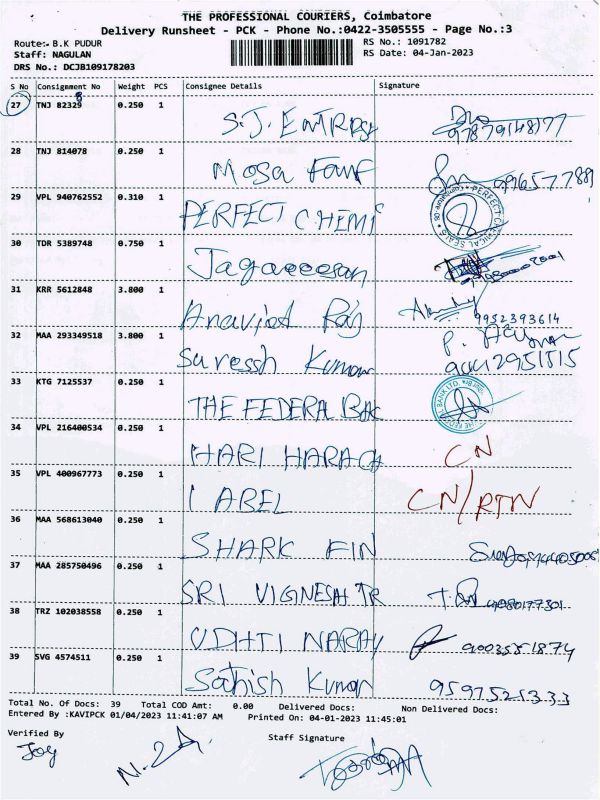 THE PROFESSIONAL COURIERS, Coimbatore
Delivery Runsheet - PCK - Phone No.:0422-3505555 - Page No.:3
Route:- B.K PUDUR
RS No.: 1091782
Staff: NAGULAN
RS Date: 04-Jan-2023
DRS No.: DCJB109178203
S No Consignment No Weight PCS Consignee Details Signature
27 TNJ 82329 0.250 1 S.J. ENTRPS
28 TNJ 814078 0.250 1 Mosa Fanf
29 VPL 940762552 0.310 1 PERFECT CHEMI
PERFECT CHEMICAL SEALS
30 TDR 5389748 0.750 1
31 KRR 5612848 3.800 1 Aravind Raj 9952393614
32 MAA 293349518 3.800 1 Suressh Kumar
33 KTG 7125537 0.250 1 THE FEDERAL BAK
34 VPL 216400534 0.250 1 HARI HARA CN
35 VPL 400967773 0.250 1 LABEL CN/RTN
36 MAA 568613040 0.250 1 SHARK FIN
37 MAA 285750496 0.250 1 SRI VIGINESH TR
38 TRZ 102038558 0.250 1 UDHTI NARAY
39 SVG 4574511 0.250 1 Sathish Kumar
Total No. Of Docs: 39 Total COD Amt: 0.00 Delivered Docs: Non Delivered Docs:
Entered By :KAVIPCK 01/04/2023 11:41:07 AM Printed On: 04-01-2023 11:45:01
Verified By
Staff Signature
Joy